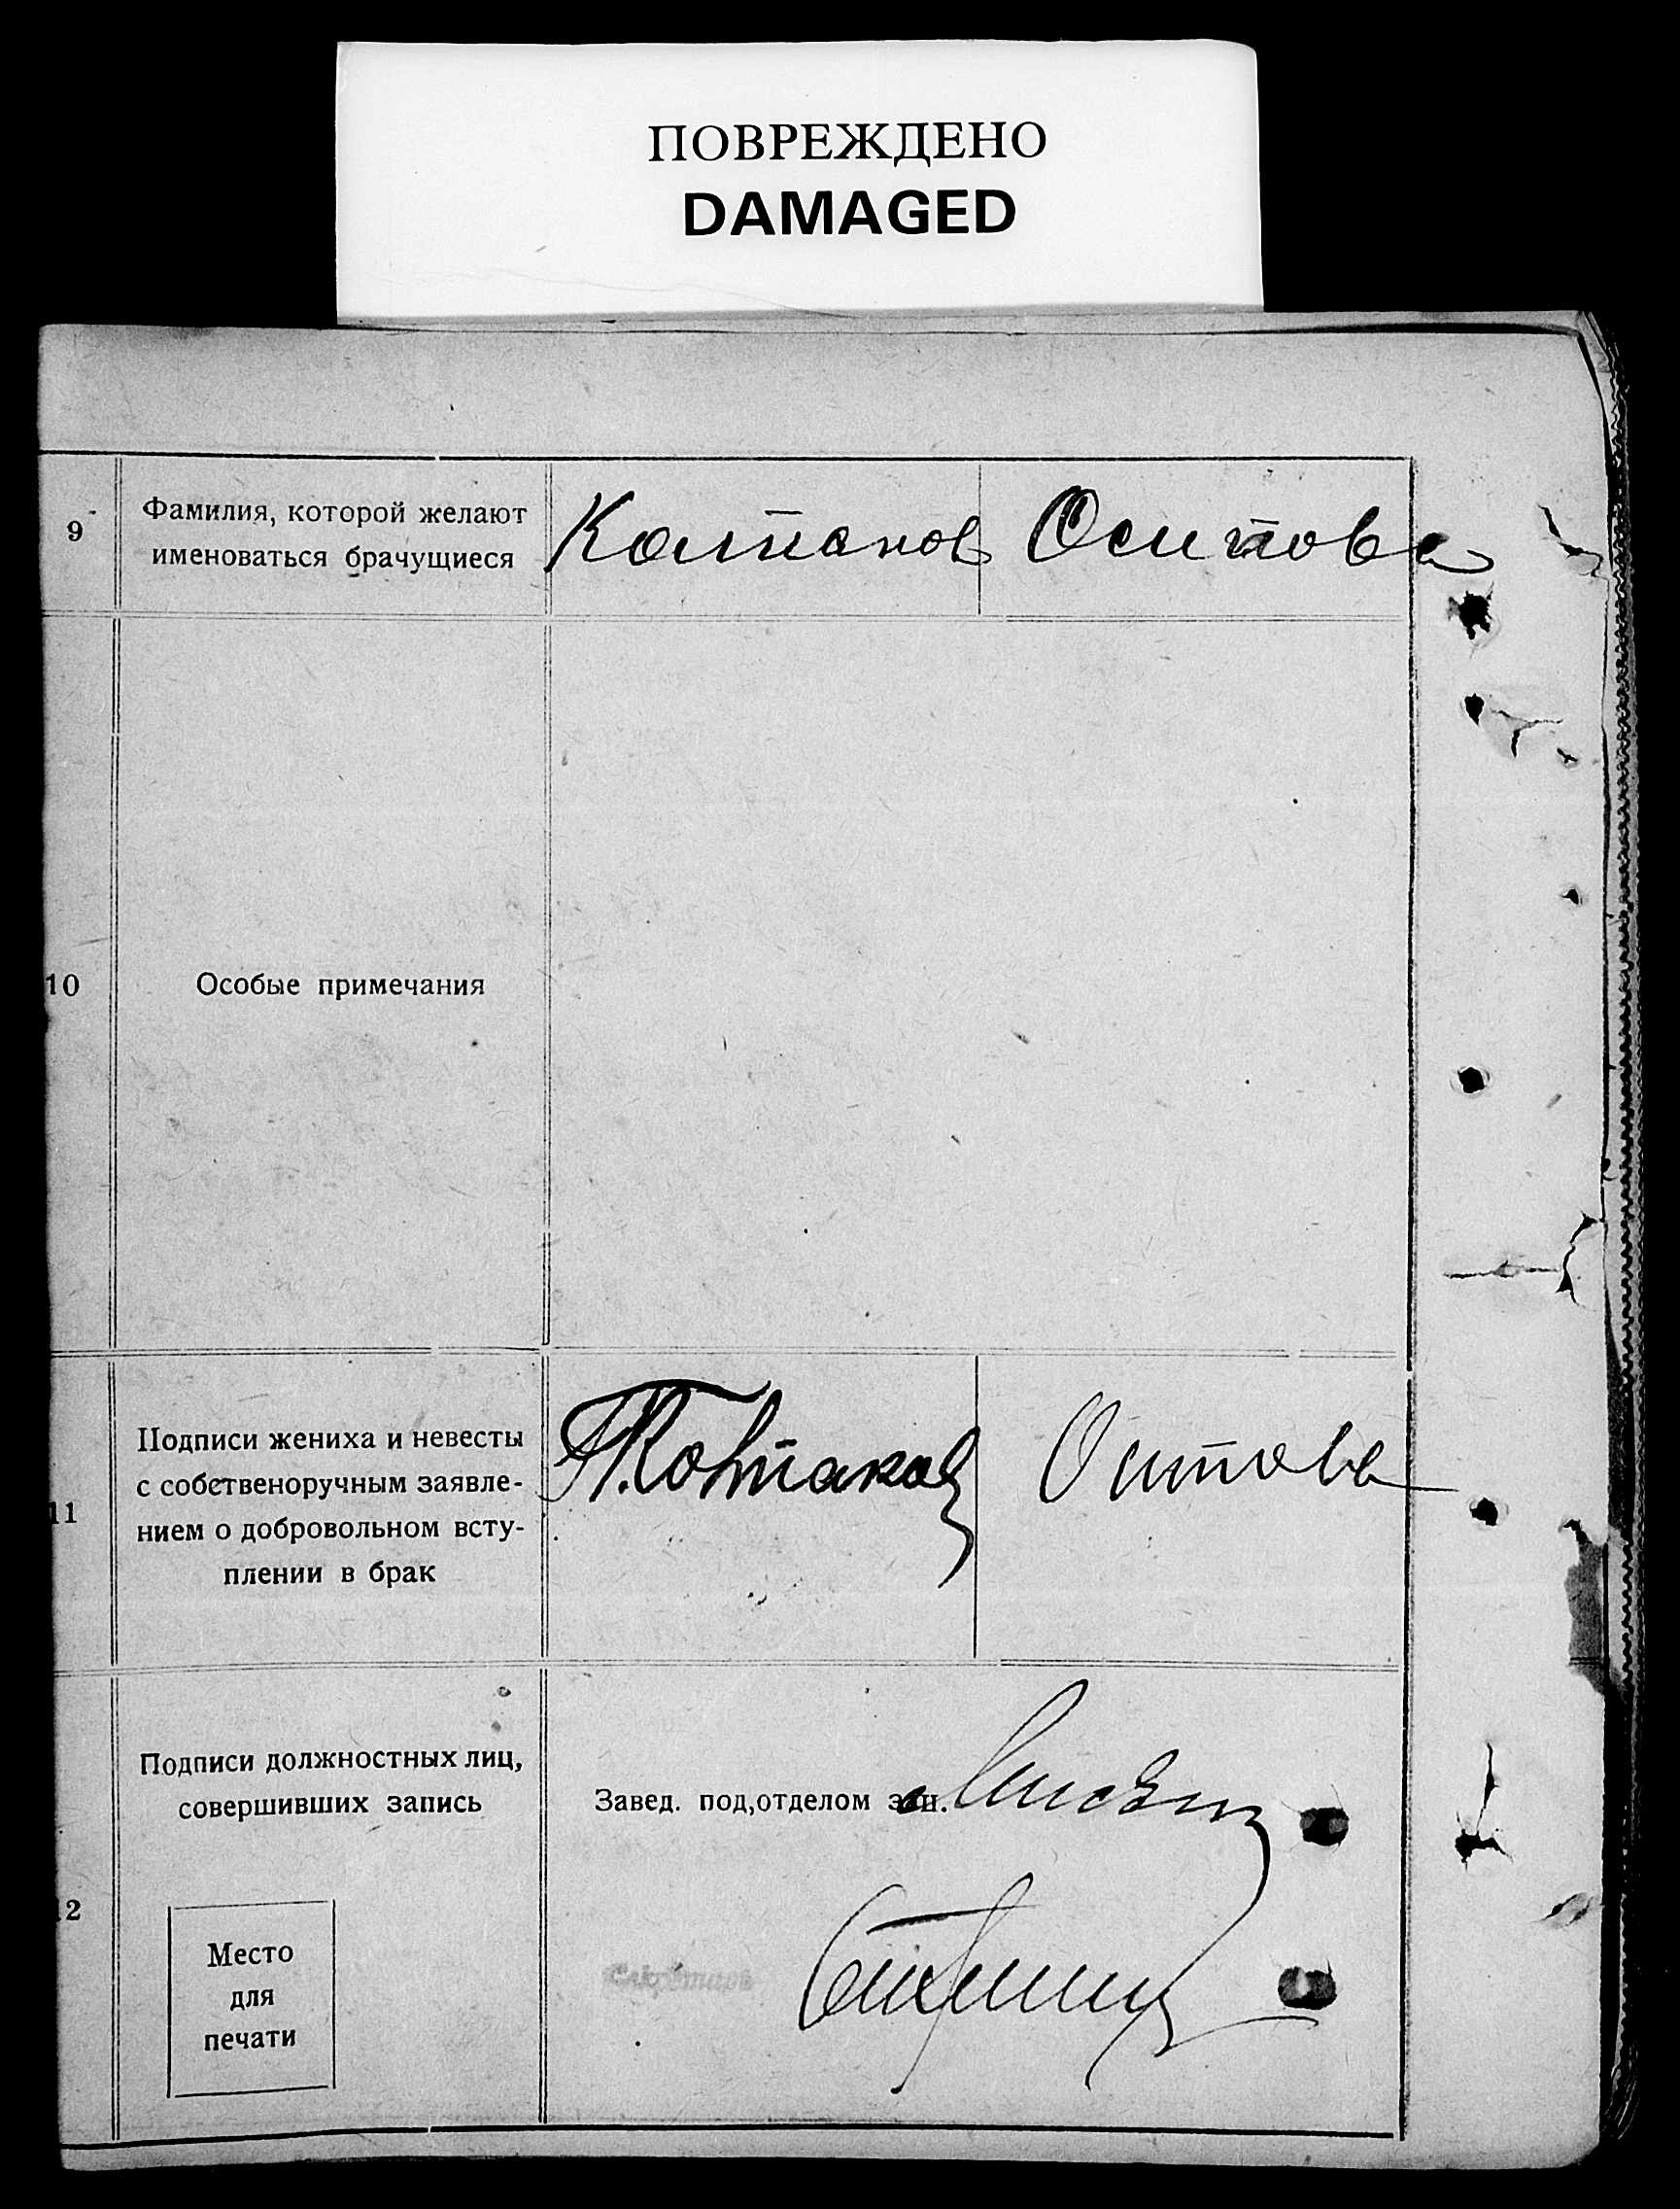 ПОВРЕЖДЕНО
DAMAGED
9
Фамилия, которой желают
именоваться брачущиеся
Колпаков Осипова
10
Особые примечания
11
Подписи жениха и невесты
с собственоручным заявле-
нием о добровольном всту-
плении в брак
Осипова
Подписи должностных лиц,
совершивших запись
Завед. под,отделом зап.
2
Место
для
печати
Секретарь